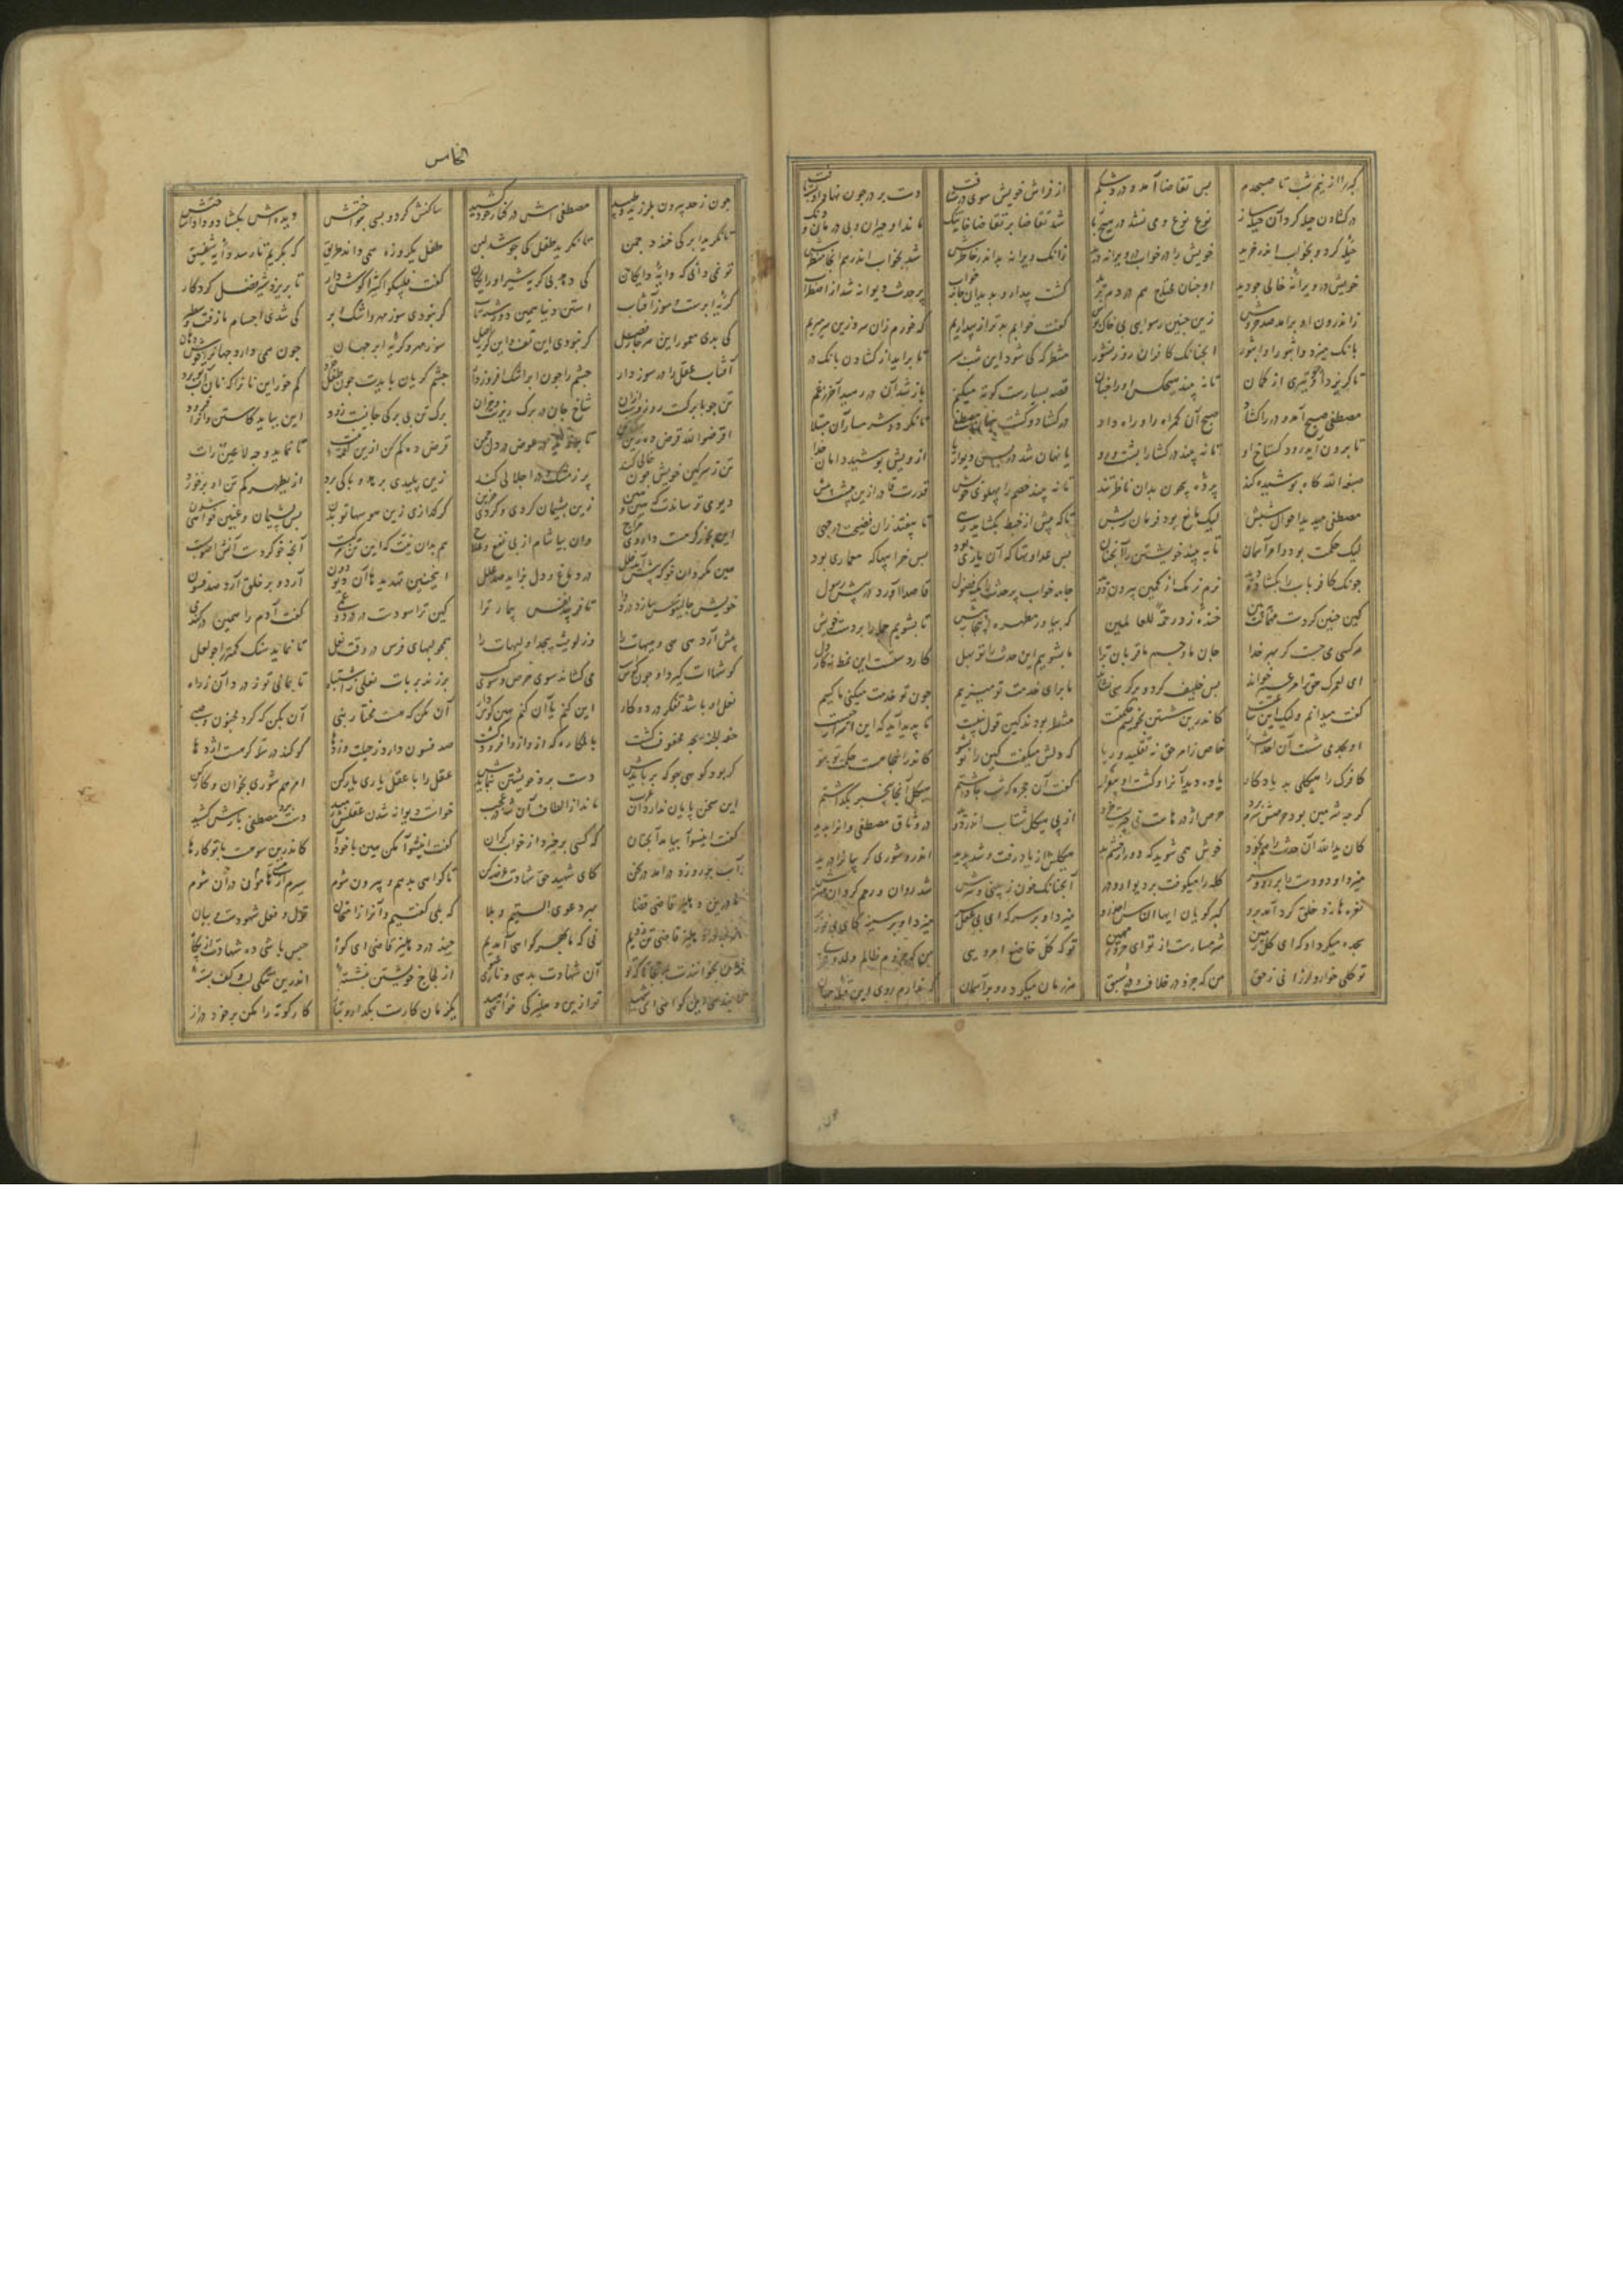 گبر را از نیم شب تا صبحدم بس تقاضا آمد و درد شکم از فراش خویش سوی در شتافت دست بر در چون نهاد او بسته یافت
در کشادن حیله کرد آن حیله ساز نوع نوع و می نشد در هیچ باز شد تقاضا بر تقاضا خانه تنک ماند او حیران و بی درمان و دنک
حیله کرد و بخواب اندر خزید خویش را در خواب در ویرانه دید زانک ویرانه بد اندر خاطرش شد بخواب اندر هم آنجا منظرش
خویش در ویرانه خالی چو دید او چنان محتاج هم در دم برید کشت بیدار و بدید آن جامه خواب پر حدث دیوانه شد از اضطراب
ز اندرون او برآمد صد خروش زین چنین رسوایی بی خاک پوش کفت خوابم بدتر از بیداریم که خورم زان سو و زین سو میریم
بانک میزد واثبورا واثبور همچنانک کافران روز نشور منتظر که کی شود این شب بسر تا برآید از کشادن بانک در
تا کریزد او چو تیری از کمان تا نه بیند هیچکس او را چنان قصه بسیارست کوته میکنم باز شد آن در رهید از درد و غم
مصطفی صبح آمد و در را کشاد صبح آن کمراه را او راه داد در کشاد و کشت پنهان مصطفی تا نکردد شرمسار آن مبتلا
تا برون آید رود کستاخ او تا نه بیند در کشا را پشت و رو یا نهان شد در پس دیوارها از ویش پوشید دامان خدا
صبغة الله کاه پوشیده کند پرده بیچون بدان ناظر تند تا نه بیند خصم را پهلوی خویش قدرت قادر ازین بیشست بیش
مصطفی میدید احوال شبش لیک مانع بود فرمان ربش تا که پیش از خبط بکشاید رهی تا نیفتد زان فضیحت در چهی
لیک حکمت بود و امر آسمان تا به بیند خویشتن را آنچنان بس عداوتها که آن یاری بود بس خرابیها که معماری بود
چونک کافر باب را بکشاده دید نرم نرمک از کمین بیرون دوید جامه خواب پر حدث را یک فضول قاصدا آورد در پیش رسول
کین چنین کردست مهمانت ببین خنده زد رحمة للعالمین که بیار مطهره اینجا به پیش تا بشویم جمله را بر دست خویش
هر کسی می جست کز بهر خدا جان ما و جسم ما قربان ترا ما بشوییم این حدث را تو بهل کار دستست این نمط نه کار دل
ای لعمرک حق ترا عمر خواند بس خلیفه کرد و بر کرسی نشاند ما برای خدمت تو میزییم چون تو خدمت میکنی ما کیییم
کفت میدانم ولیک این ساعتیست کاندرین شستن بخویشم حکمتیست منتظر بودند کین قول نبیست تا پدید آید که این اسرار چیست
او بجد می شست آن احداث را خاص ز امر حق نه تقلید و ریا که دلش میکفت کین را تو بشو کاندر اینجا هست حکمت تو بتو
کافرک را هیکلی بد یادکار یاوه دید آنرا و کشت او بیقرار کفت آن حجره که شب جا داشتم هیکل آنجا بیخبر بکذاشتم
کرچه شرمین بود شرمش حرص برد حرص اژدرهاست نی چیزیست خرد از پی هیکل شتاب اندر دوید در وثاق مصطفی و آنرا بدید
کان یدالله آن حدث را هم بخود خوش همی شوید که دور از چشم بد هیکلش از یاد رفت و شد پدید اندرو شوری کریبانرا درید
میزد او دو دست را بر رو و سر کله را میکوفت بر دیوار و در آنچنانک خون ز بینی و سرش شد روان و رحم کرد آن مهترش
نعره ها زد خلق کرد آمد برو کبر کویان ایها الناس احذروا میزد او بر سر که ای بی عقل سر میزد او بر سینه کای بی نور بر
سجده میکرد او که ای کل زمین شرمسارست از تو این جزو مهین تو که کلی خاضع امر ویی من که جزوم ظالم و زشت و غوی
تو که کلی خوار و لرزانی ز حق من که جزوم در خلاف و در سبق هر زمان میکرد رو بر آسمان که ندارم روی این قبله جهان
الخامس
چون ز حد بیرون بلرزید و طپید مصطفی اش در کنار خود کشید ساکنش کرد و بسی بنواختش دیده اش بکشاد و داد اشناختش
تا نکرید ابر کی خندد چمن تا نکرید طفل کی جوشد لبن طفل یکروزه همی داند طریق که بکریم تا رسد دایه شفیق
تو نمی دانی که دایه دایکان کی دهد بی کریه شیر او رایکان کفت فلیبکوا کثیرا کوش دار تا بریزد شیر فضل کردکار
کریه ابرست و سوز آفتاب استن دنیا همین دو رشته تاب کر نبودی سوز مهر و اشک ابر کی شدی اجسام ما زفت و سطبر
کی بدی معمور این هر چار فصل کر نبودی این تف و این کریه اصل سوز مهر و کریه ابر جهان چون همی دارد جهانرا خوش دهان
آفتاب عقل را در سوز دار چشم را چون ابر اشک افروز دار چشم کریان بایدت چون طفل خرد کم خور این نانرا که نان آب تو برد
تن چو با برکست روز و شب از آن شاخ جان در برک ریزست و خزان برک تن بی برکی جانست زود این بباید کاستن وانرا فزود
اقرضوا الله قرض ده زین برک تن تا بروید در عوض در دل چمن قرض ده کم کن ازین لقمه تنت تا نماید وجه لا عین رات
تن ز سرکین خویش چون خالی کند پر ز مشک و در اجلالی کند زین پلیدی برهد و پاکی برد از یطهرکم تن او بر خورد
دیو می ترساندت که هین و هین زین پشیمان کردی و کردی حزین کر کدازی زین هوسها تو بدن بس پشیمان و غمین خواهی شدن
این بخور کرمست و داروی مزاج وان بیاشام از پی نفع و علاج هم بدان نیت که این تن مرکبست آنچه خو کردست آنش اصوبست
هین مکردان خو که پیش آید خلل در دماغ و دل بزاید صد علل اینچنین تهدیدها آن دیو دون آرد و بر خلق آرد صد فسون
خویش جالینوس سازد در دوا تا فریبد نفس بیمار ترا کین ترا سودست از درد و غمی کفت آدم را همین در کندمی
پیش آرد هی هی و هیهات را وز لویشه پیچد او لبهات را همچو لبهای فرس در وقت نعل تا نماید سنک کمتر را چو لعل
کوشهاات کیرد او چون کوش اسب می کشاند سوی حرص و سوی کسب بر زند بر پات نعلی ز اشتباه تا بمانی تو ز درد آن ز راه
نعل او باشد تفکر در دو کار این کنم یا آن کنم هین کوش دار آن بکن که هست مختار نبی آن مکن که کرد مجنون و صبی
حفت الجنه بچه محفوف کشت بالمکاره که ازو افزود کشت صد فسون دارد ز حیلت وز دها کو کند در سله کر هست اژدها
کر بود کوهی چو که بر بایدش دست برد خویشتن بنمایدش عقل را با عقل یاری یار کن امرهم شوری بخوان و کار کن
این سخن پایان ندارد آن عرب ماند از الطاف آن شه در عجب خواست دیوانه شدن عقلش رمید دست مصطفی بازش کشید
کفت اینسو آ بیامد آنچنان که کسی برخیزد از خواب کران کفت اینسو آ مکن هین با خود آ کاندرین سو هست با تو کارها
آب بر رو زد در آمد در سخن کای شهید حق شهادت عرضه کن تا کواهی بدهم و بیرون شوم سیرم از هستی در آن هامون شوم
ما درین دهلیز قاضی قضا بهر دعوی الستیم و بلا که بلی کفتیم و آنرا ز امتحان قول و فعل ما شهودست و بیان
از چه در دهلیز قاضی تن زدیم نی که ما بهر کواهی آمدیم چند در دهلیز قاضی ای کواه حبس باشی ده شهادت از پکاه
زان بخواندندت بدینجا تا که تو آن شهادت بدهی و ناری عتو از لجاج خویشتن بنشسته اندرین تنکی لب و کف بسته
تا بندهی این کواهی ای شهید تو ازین دهلیز کی خواهی رهید یکزمان کارست بکذار و بتاز کار کوته را مکن بر خود دراز